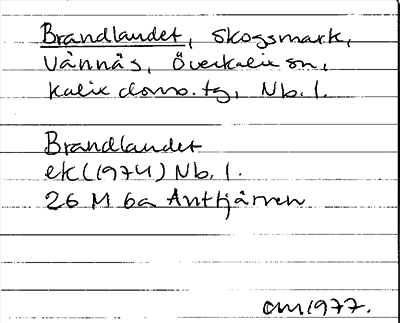 Brandlandet, skogsmark,
Vännäs, Överkalix sn,
Kalix doms.tg, Nb. l.
Brandlandet
ek (1974) Nb. l.
26 M 6a Anttjärnen
OM 1977.